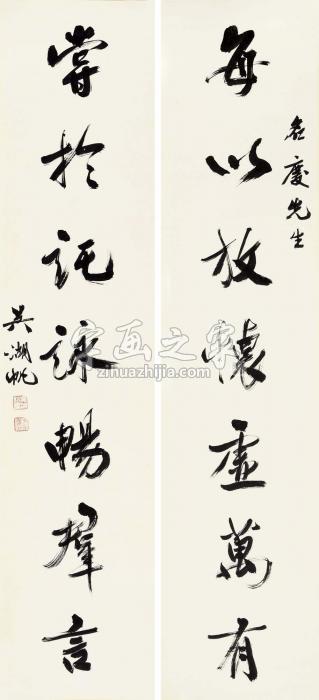 每以放懷虛萬有
嘗於託詠暢羣言
名慶先生
吳湖帆
字画之家
zihuazhijia.com